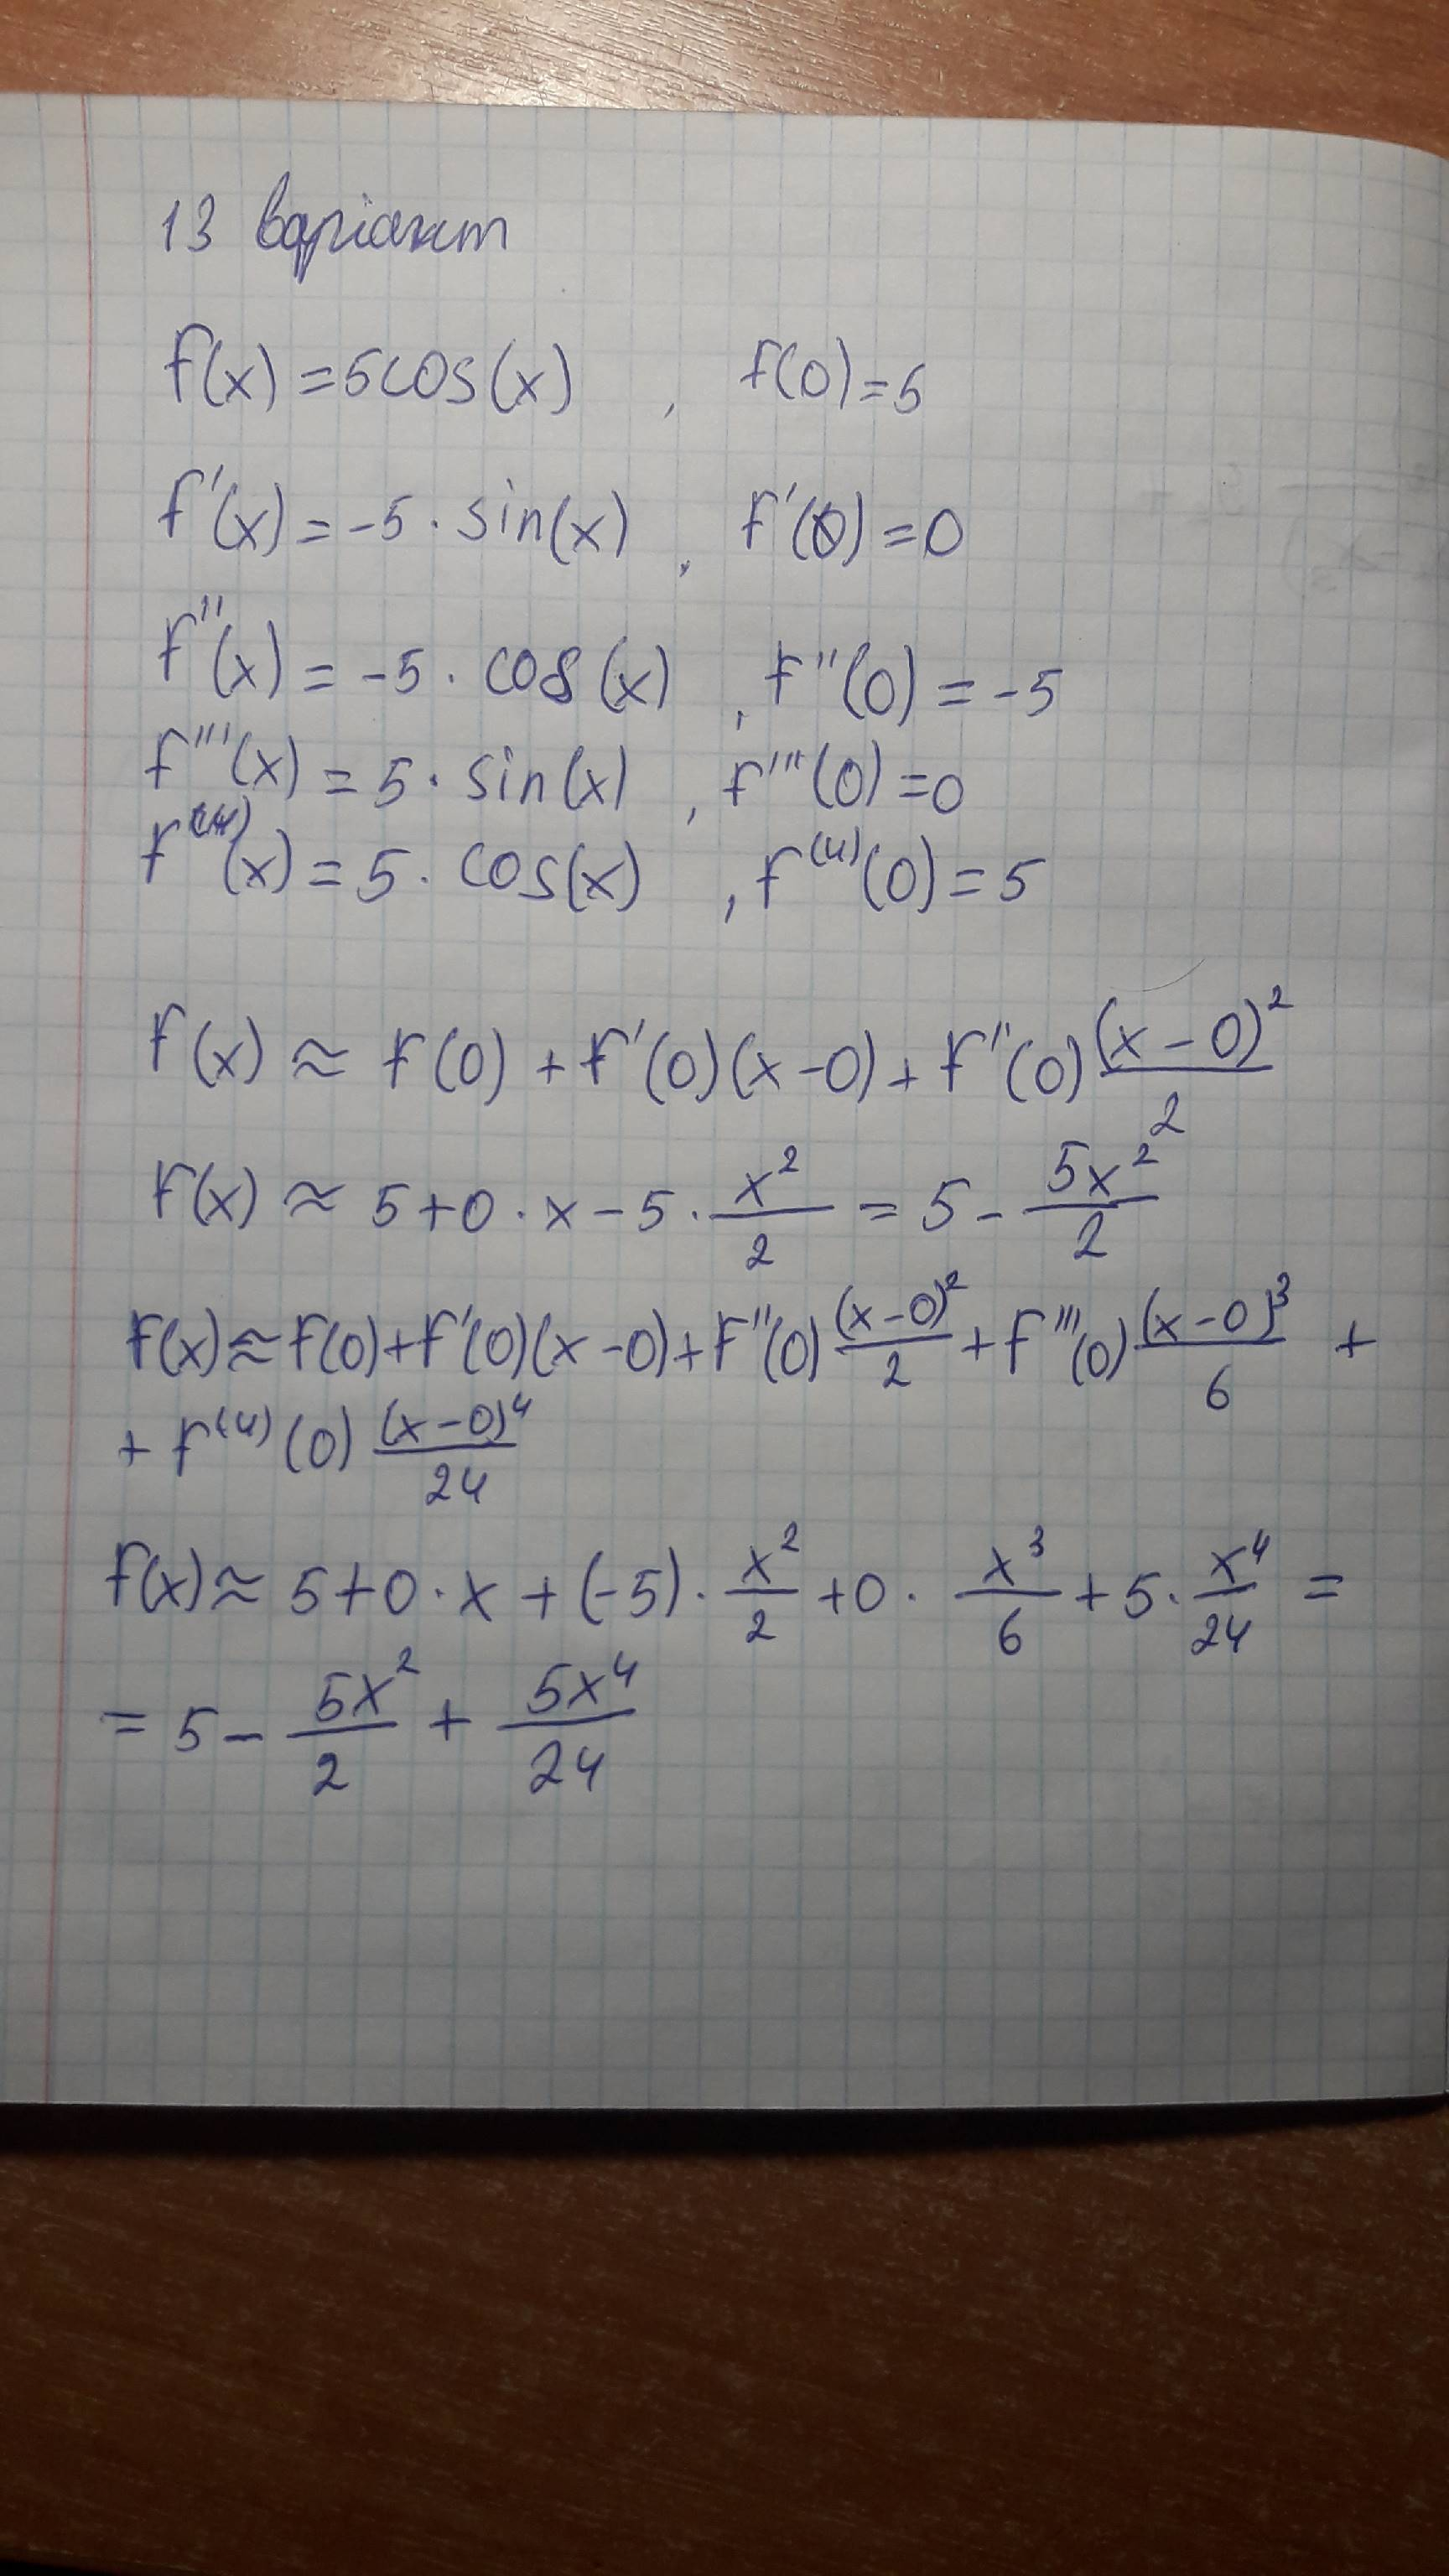 13 варіант
f(x) = 5cos(x) , f(0) = 5
f'(x) = -5 · sin(x) , f'(0) = 0
f''(x) = -5 · cos(x) , f''(0) = -5
f'''(x) = 5 · sin(x) , f'''(0) = 0
f⁽⁴⁾(x) = 5 · cos(x) , f⁽⁴⁾(0) = 5
f(x) ≈ f(0) + f'(0)(x-0) + f''(0) (x-0)²/2
f(x) ≈ 5 + 0 · x - 5 · x²/2 = 5 - 5x²/2
f(x) ≈ f(0) + f'(0)(x-0) + f''(0) (x-0)²/2 + f'''(0) (x-0)³/6 +
+ f⁽⁴⁾(0) (x-0)⁴/24
f(x) ≈ 5 + 0 · x + (-5) · x²/2 + 0 · x³/6 + 5 · x⁴/24 =
= 5 - 5x²/2 + 5x⁴/24